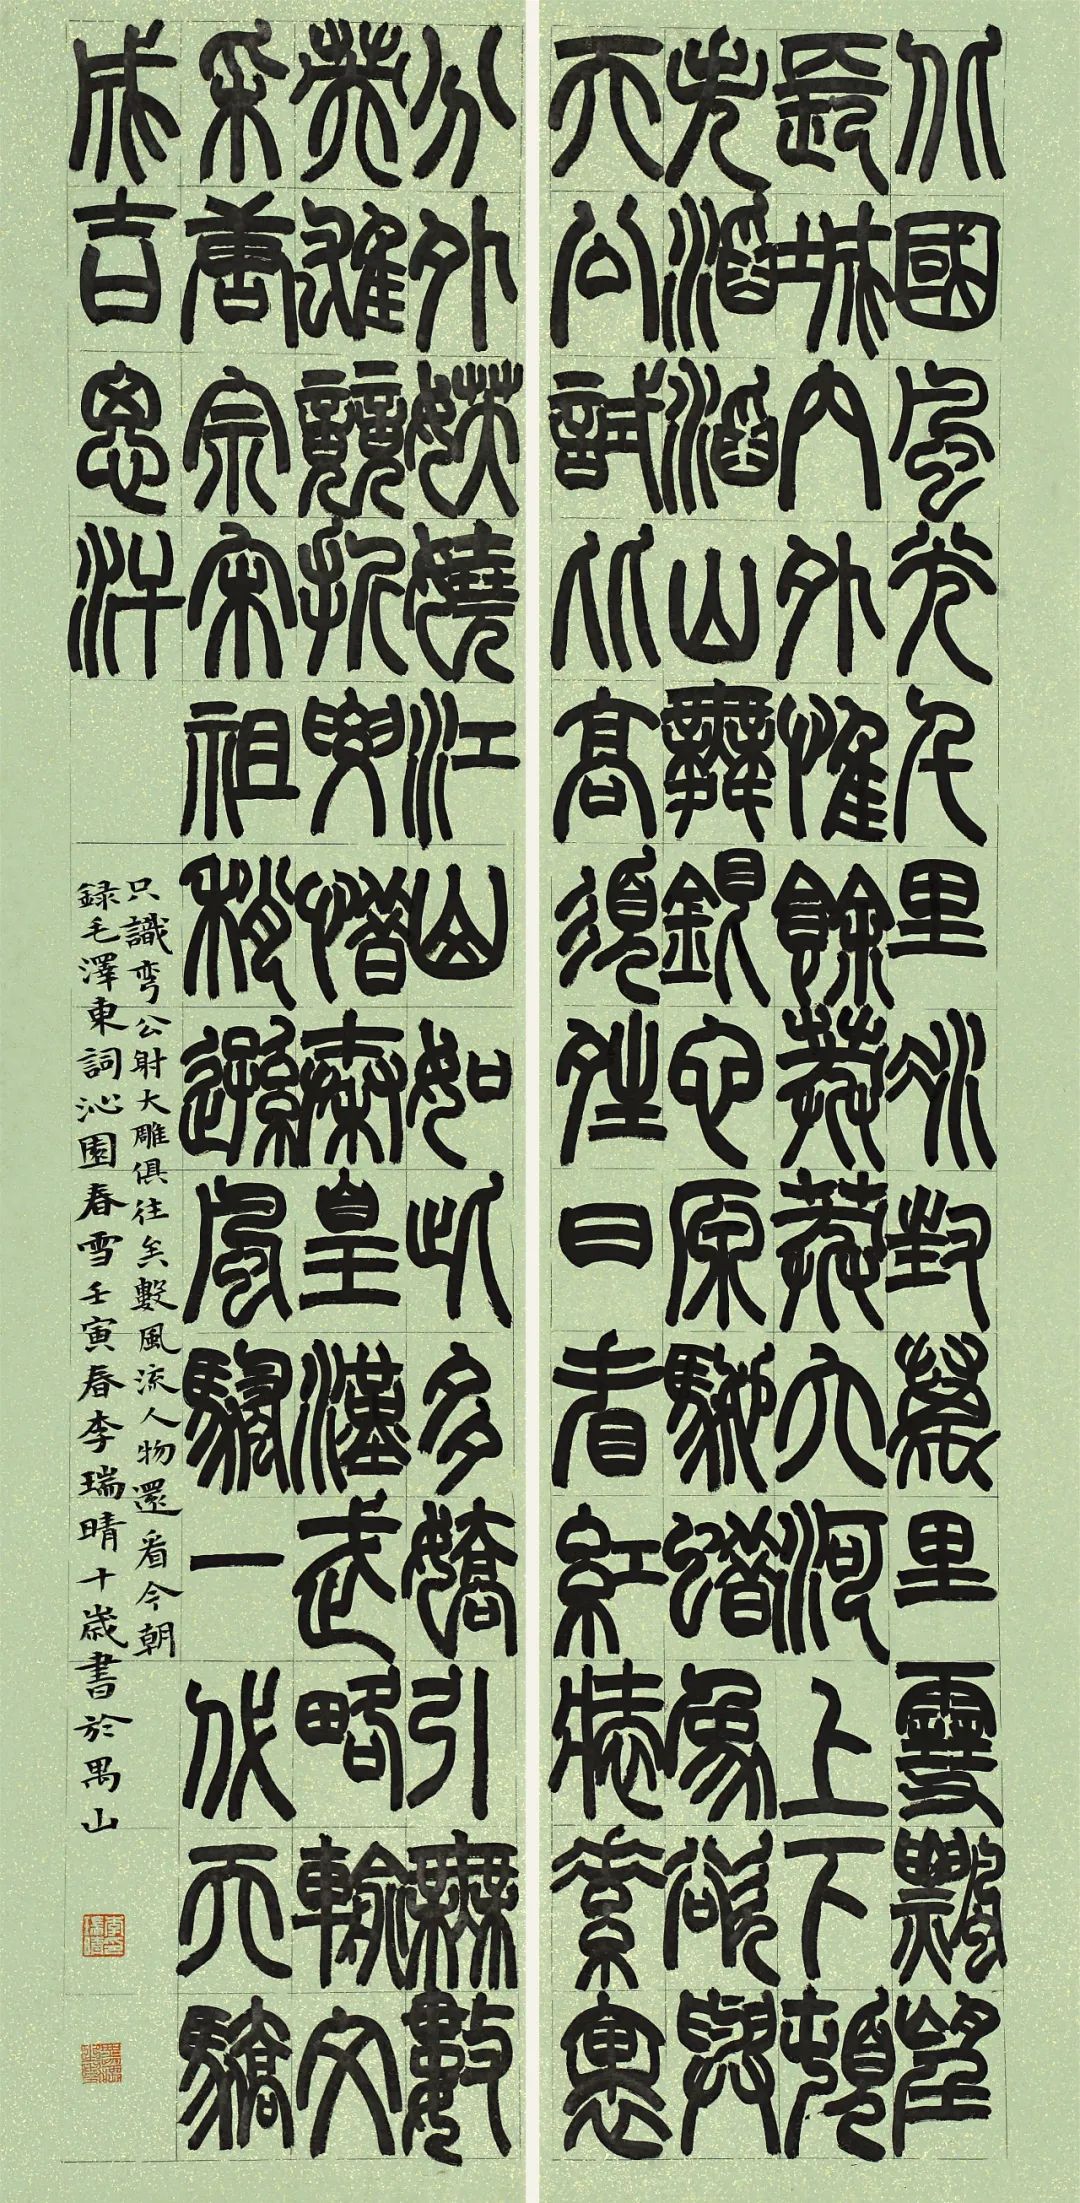 北國風光千里冰封萬里雪飄望
長城內外惟餘莽莽大河上下頓
失滔滔山舞銀蛇原馳蠟象欲與
天公試比高須晴日看紅裝素裹
分外妖嬈江山如此多嬌引無數
英雄競折腰惜秦皇漢武略輸文
采唐宗宋祖稍遜風騷一代天驕
成吉思汗
只識弯公射大雕俱往矣數風流人物還看今朝
録毛澤東詞沁園春雪壬寅春李瑞晴十歲書於禺山